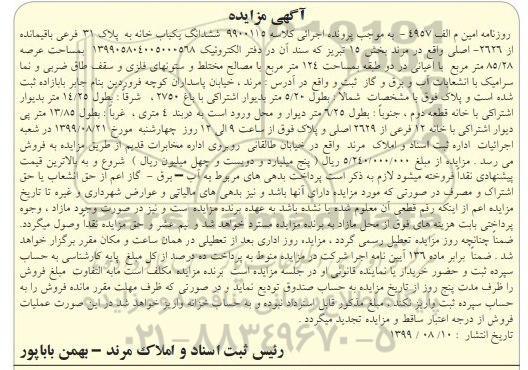 آگهی مزایده
روزنامه امین م الف ۴۹۵۷ - به موجب پرونده اجرائی کلاسه ۹۹۰۰۱۱۵ ششدانگ یکباب خانه به پلاک ۳۱ فرعی باقیمانده
از ۲۶۲۶- اصلی واقع در مرند بخش ۱۵ تبریز که سند آن در دفتر الکترونیک ۱۳۹۹۰۵۸۰۴۰۰۵۰۰۰۵۶۸ بمساحت عرصه
۸۵/۲۸ متر مربع با اعیانی در دو طبقه بمساحت ۱۲۴ متر مربع با مصالح مختلط و ستونهای فلزی و سقف طاق ضربی و نما
سرامیک با انشعابات آب و برق و گاز ثبت و واقع در آدرس : مرند ، خیابان پاسداران کوچه فروردین بنام جابر بابازاده ثبت
شده است و پلاک فوق با مشخصات شمالا : بطول ۵/۲۰ متر بدیوار اشتراکی با باغ ۲۷۵۰ ، شرقا : بطول ۱۴/۲۵ متر بدیوار
اشتراکی با خانه قطعه دوم ، جنوباً : بطول ۶/۲۵ متر دیوار و محل ورود است به دربند ۴ متری ، غرباً : بطول ۱۳/۸۵ متر پی
دیوار اشتراکی با خانه ۱۲ فرعی از ۲۶۲۹ اصلی و پلاک فوق از ساعت ۹ الی ۱۲ روز چهارشنبه مورخ ۱۳۹۹/۰۸/۲۱ در شعبه
اجرائیات اداره ثبت اسناد و املاک مرند واقع در خیابان طالقانی روبروی اداره مخابرات قدیم از طریق مزایده به فروش
می رسد . مزایده از مبلغ ۵/۲۴۰/۰۰۰/۰۰۰ ریال ( پنج میلیارد و دویست و چهل میلیون ریال ) شروع و به بالاترین قیمت
پیشنهادی نقداً فروخته میشود لازم به ذکر است پرداخت بدهی های مربوط به آب – برق - گاز اعم از حق انشعاب یا حق
اشتراک و مصرف در صورتی که مورد مزایده دارای آنها باشد و نیز بدهی های مالیاتی و عوارض شهرداری و غیره تا تاریخ
مزایده اعم از اینکه رقم قطعی آن معلوم شده یا نشده باشد به عهده برنده مزایده است و نیز در صورت وجود مازاد ، وجوه
پرداختی بابت هزینه های فوق از محل مازاد به برنده مزایده مسترد خواهد شد و نیم عشر و حق مزایده نقداً وصول میگردد.
ضمناً چنانچه روز مزایده تعطیل رسمی گردد ، مزایده روز اداری بعد از تعطیلی در همان ساعت و مکان مقرر برگزار خواهد
شد . ضمناً برابر ماده ۱۳۶ آیین نامه اجرا شرکت در مزایده منوط به پرداخت ده درصد از کل مبلغ پایه کارشناسی به حساب
سپرده ثبت و حضور خریدار یا نماینده قانونی او در جلسه مزایده است . برنده مزایده مکلف است مابه التفاوت مبلغ فروش
را ظرف مدت پنج روز از تاریخ مزایده به حساب صندوق تودیع نماید . و در صورتی که ظرف مهلت مقرر مانده فروش را به
حساب سپرده ثبت واریز نکند، مبلغ مذکور قابل استرداد نبوده و به حساب خزانه واریز خواهد شد در این صورت عملیات
فروش از درجه اعتبار ساقط و مزایده تجدید میگردد .
تاریخ انتشار : ۱۰ / ۰۸ / ۱۳۹۹
رئیس ثبت اسناد و املاک مرند – بهمن باباپور
۰۲۱-۸۸۳۴۹۶۷۰-۵